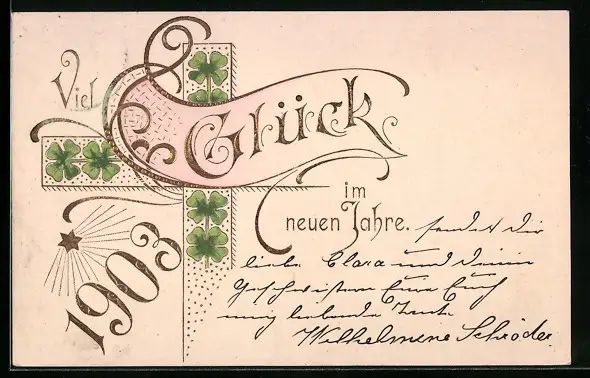 Viel
Glück
im
neuen Jahre.
1903
sendet Dir
liebe Clara und Deinen
Geschwistern Eure Euch
innig liebende Tante
Wilhelmine Schröder.